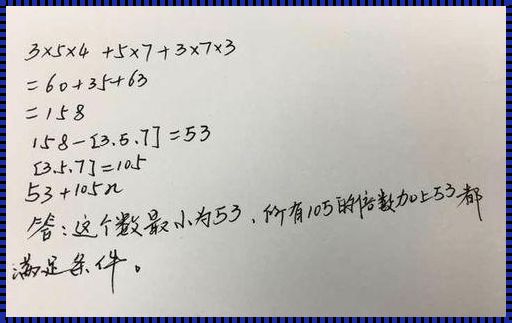 3×5×4 +5×7+3×7×3
=60+35+63
=158
158-[3.5.7]=53
[3.5.7]=105
53+105n
答:这个数最小为53,所有105的倍数加上53都
满足条件。